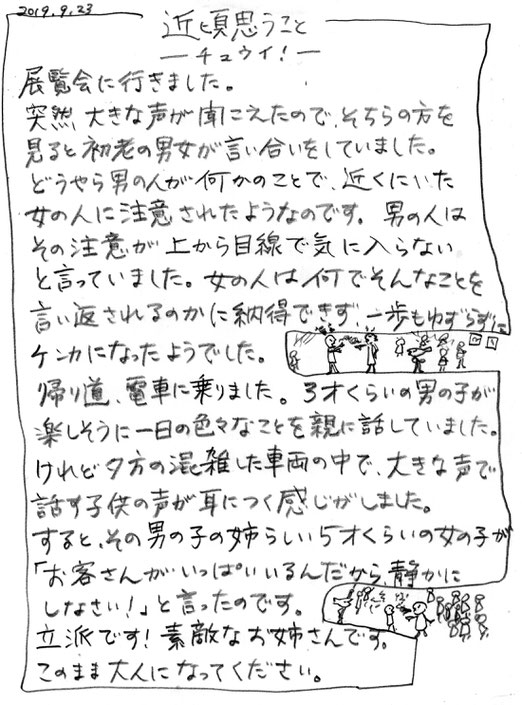 2019.9.23
近頃思うこと
ーチュウイ!ー
展覧会に行きました。
突然大きな声が聞こえたので、そちらの方を
見ると初老の男女が言い合いをしていました。
どうやら男の人が何かのことで、近くにいた
女の人に注意されたようなのです。男の人は
その注意が上から目線で気に入らない
と言っていました。女の人は何でそんなことを
言い返されるのかに納得できず、一歩もゆずらずに
ケンカになったようでした。
帰り道、電車に乗りました。3才くらいの男の子が
楽しそうに一日の色々なことを親に話していました。
けれど夕方の混雑した車両の中で、大きな声で
話す子供の声が耳につく感じがしました。
すると、その男の子の姉らしい5才くらいの女の子が
「お客さんがいっぱいいるんだから、静かに
しなさい!」と言ったのです。
立派です!素敵なお姉さんです。
このまま大人になってください。